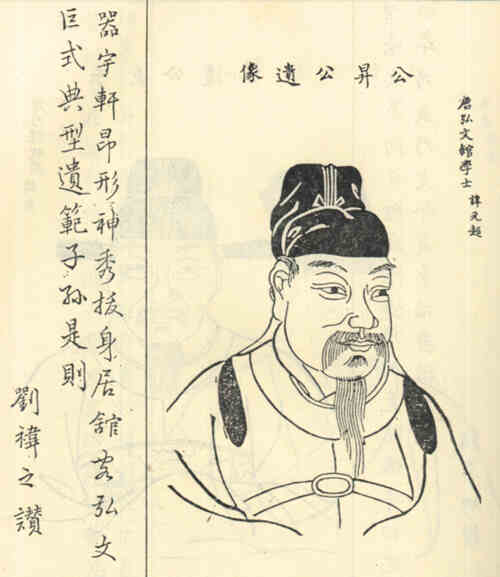 唐弘文館學士 諱元超
公昇公遺像
器宇軒昂形神秀拔身居舘弘文
巨式典型遺範子孫是則
劉禕之讃